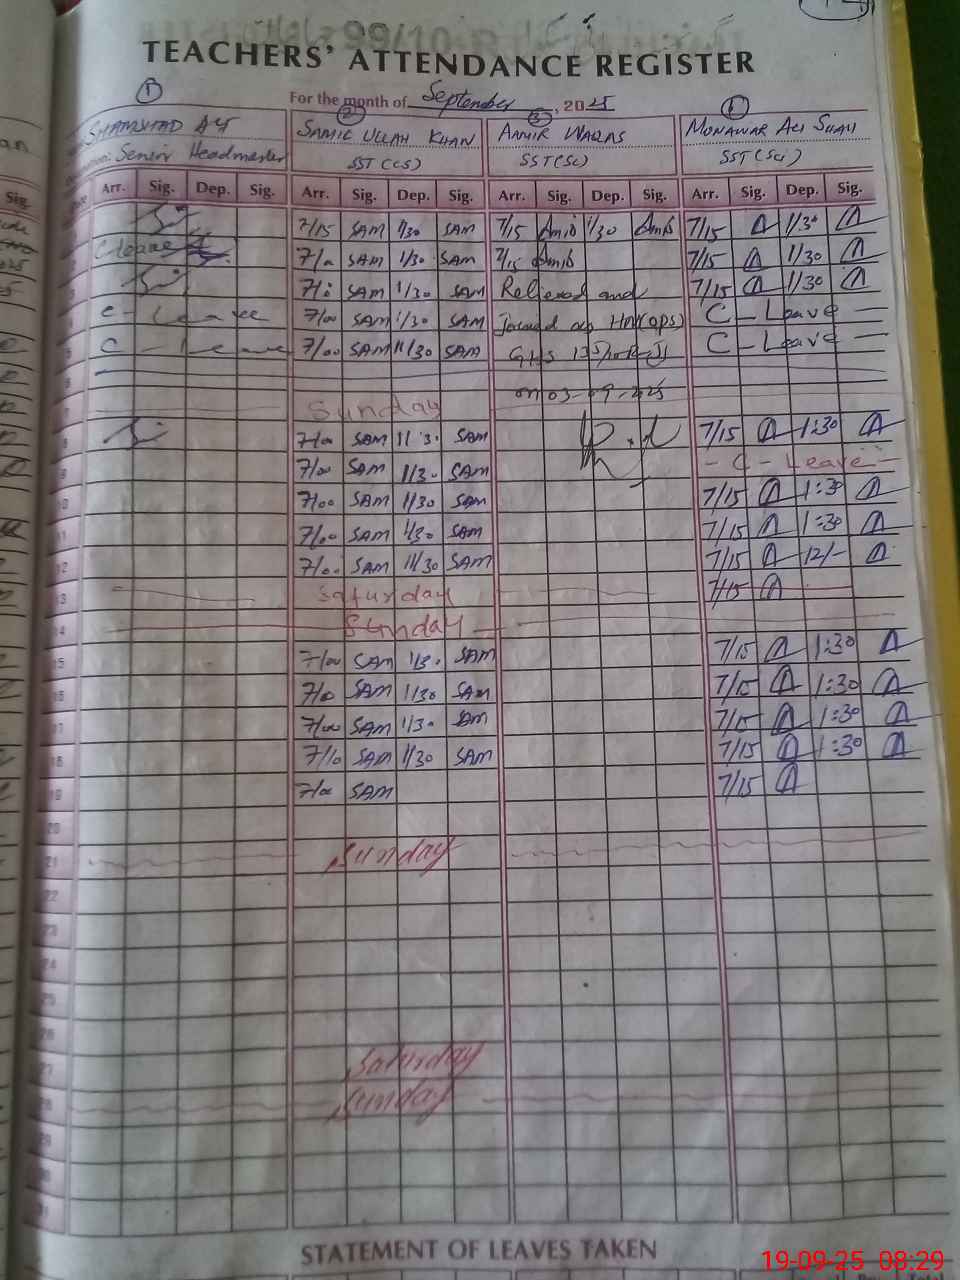 TEACHERS' ATTENDANCE REGISTER
For the month of September, 2025
1 2 3
SHAMSHAD SAMIE ULLAH KHAN AAMIR WAQAS MONAWAR ALI SHAH
Senior Headmaster SST(CS) SST(SC) SST(Sci)
Arr. Sig. Dep. Sig. Arr. Sig. Dep. Sig. Arr. Sig. Dep. Sig. Arr. Sig. Dep. Sig.
7/15 SAM 1/30 SAM 7/15 1/30 7/15 1/30
C leave SAM 1/30 SAM 7/15 7/15 1/30
SAM 1/30 SAM Relieved and 7/15 1/30
C - Leave 7/00 SAM 1/30 SAM C - Leave
C - Leave 7/00 SAM 11/30 SAM GHS C - Leave
on 03-09-2025
7 Sunday
8 7/00 SAM SAM 7/15 1:30
9 7/00 SAM 1/30 SAM - C - Leave -
10 7/00 SAM 1/30 SAM 7/15 1:30
11 7/00 SAM 1/30 SAM 7/15 1:30
12 SAM 11/30 SAM 7/15 12/-
13 Saturday 7/15
14 Sunday
15 7/00 SAM 1/30 SAM 7/15 1:30
16 SAM 1/30 SAM 7/15 1:30
17 7/00 SAM 1/30 SAM 7/15 1:30
18 7/10 SAM 1/30 SAM 7/15 1:30
19 7/00 SAM 7/15
20
21 Sunday
22
23
24
25
26
27 Saturday
28 Sunday
29
30
31
STATEMENT OF LEAVES TAKEN
19-09-25 08:29